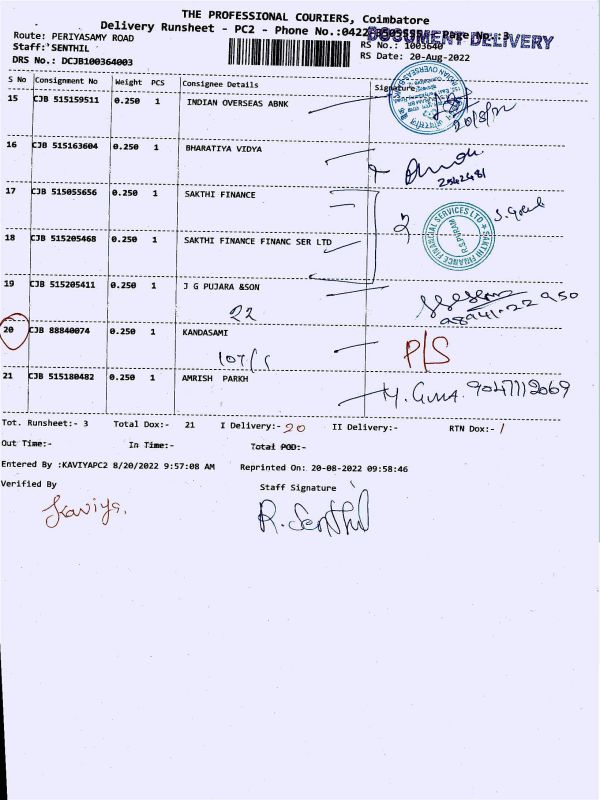 THE PROFESSIONAL COURIERS, Coimbatore
Delivery Runsheet - PC2 - Phone No.:0422 Page No.:3
DOCUMENT DELIVERY
Route: PERIYASAMY ROAD
RS No.: 1003640
Staff: SENTHIL
RS Date: 20-Aug-2022
DRS No.: DCJB100364003
S No Consignment No Weight PCS Consignee Details Signature
15 CJB 515159511 0.250 1 INDIAN OVERSEAS ABNK
20/8/22
16 CJB 515163604 0.250 1 BHARATIYA VIDYA
2542481
17 CJB 515055656 0.250 1 SAKTHI FINANCE
2
SAKTHI FINANCE FINANCIAL SERVICES LTD
R.S.PURAM
18 CJB 515205468 0.250 1 SAKTHI FINANCE FINANC SER LTD
19 CJB 515205411 0.250 1 J G PUJARA &SON
22
98941-22950
20 CJB 88840074 0.250 1 KANDASAMI
P/S
21 CJB 515180482 0.250 1 AMRISH PARKH
M. Guna. 9047112069
Tot. Runsheet:- 3 Total Dox:- 21 I Delivery:- 20 II Delivery:- RTN Dox:- 1
Out Time:- In Time:- Total POD:-
Entered By :KAVIYAPC2 8/20/2022 9:57:08 AM Reprinted On: 20-08-2022 09:58:46
Verified By Staff Signature
Kaviya.
R. Senthil